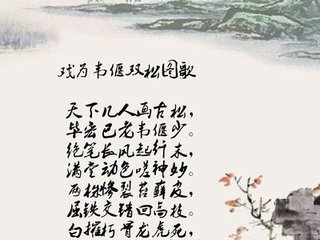 戏为韦偃双松图歌
天下几人画古松，
毕宏已老韦偃少。
绝笔长风起纤末，
满堂动色嗟神妙。
两株惨裂苔藓皮，
屈铁交错回高枝。
白摧朽骨龙虎死，